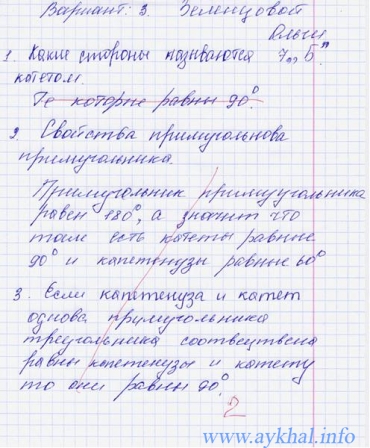 Вариант: 3. Зеленцовой
Ольги
1. Какие стороны называются 7 „Б"
катетом.
Те которые равны 90°.
2 Свойства примугольнова
примугольника
Примугольник примуугольника
равен 180°, а значит что
там есть катеты равные
90° и капетенузы равные 60°
3. Если капетенуза и катет
однова прумугольника
треугольника соотвецтвена
равны капетенузы и катету
то они равны 90°.
2
www.aykhal.info